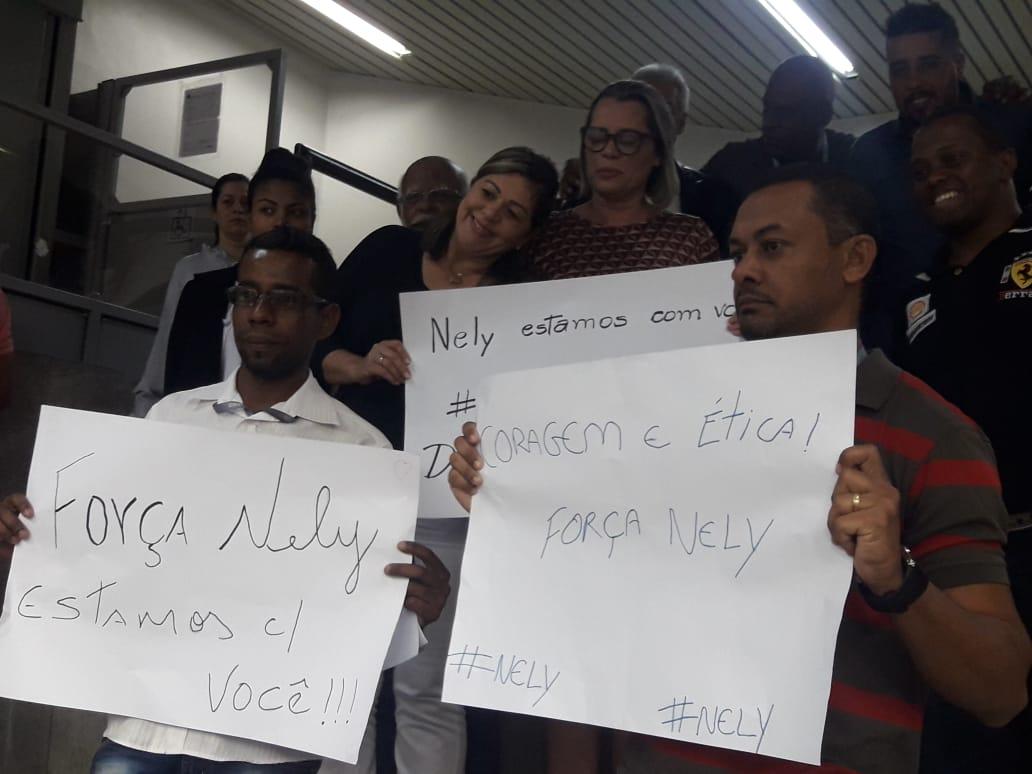 Nely estamos com
#
FORÇA Nely
ESTAMOS c/
VOCÊ!!!
CORAGEM E ÉTICA!
FORÇA NELY
#NELY
#NELY